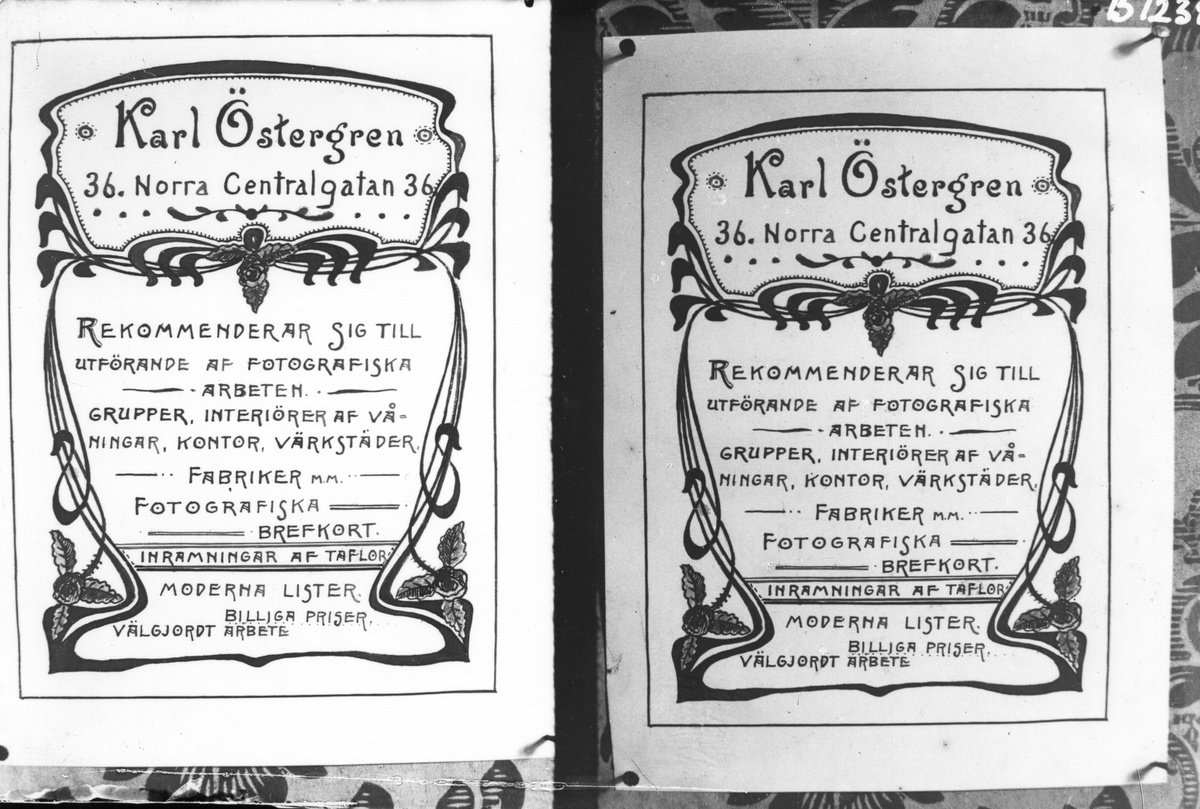 Karl Östergren
36. Norra Centralgatan 36
REKOMMENDERAR SIG TILL
UTFÖRANDE AF FOTOGRAFISKA
ARBETEN.
GRUPPER, INTERIÖRER AF VÅ=
NINGAR, KONTOR, VÄRKSTÄDER,
FABRIKER M.M.
FOTOGRAFISKA
BREFKORT.
INRAMNINGAR AF TAFLOR
MODERNA LISTER.
BILLIGA PRISER.
VÄLGJORDT ARBETE
Karl Östergren
36. Norra Centralgatan 36
REKOMMENDERAR SIG TILL
UTFÖRANDE AF FOTOGRAFISKA
ARBETEN.
GRUPPER, INTERIÖRER AF VÅ=
NINGAR, KONTOR, VÄRKSTÄDER,
FABRIKER M.M.
FOTOGRAFISKA
BREFKORT.
INRAMNINGAR AF TAFLOR
MODERNA LISTER.
BILLIGA PRISER.
VÄLGJORDT ARBETE